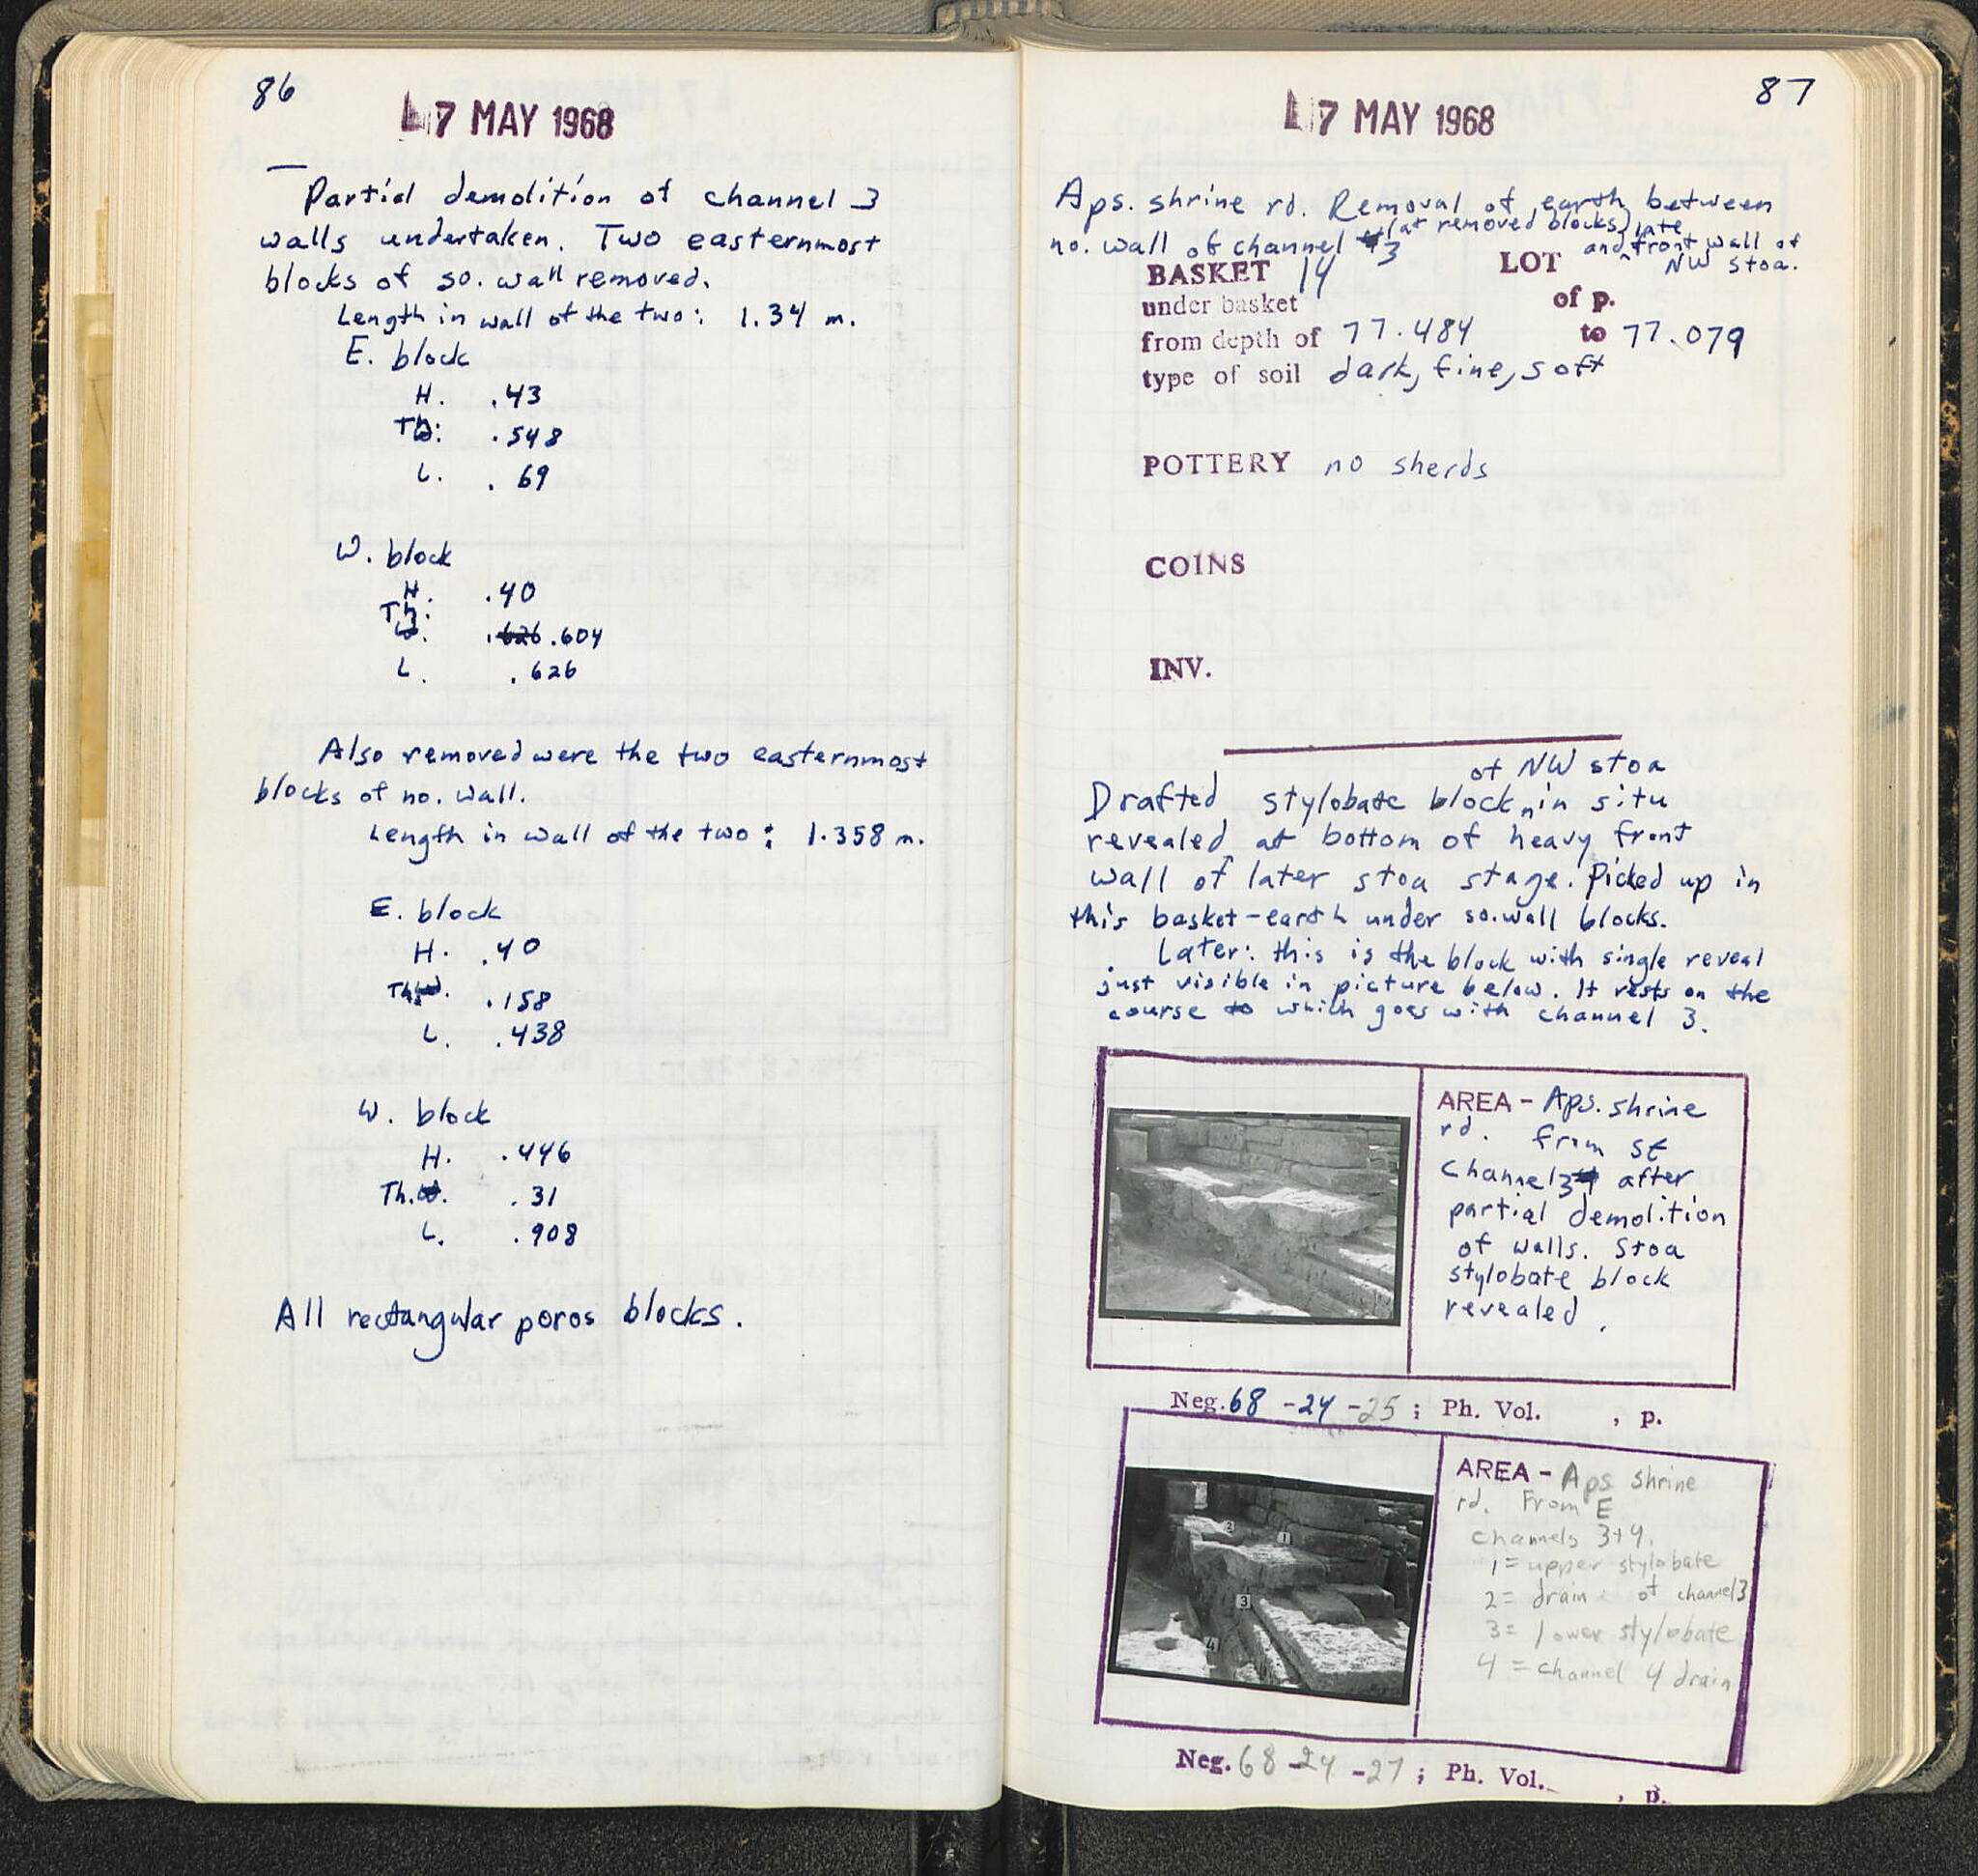 86
7 MAY 1968
Partial demolition of channel 3
walls undertaken. Two easternmost
blocks of so. wall removed.
Length in wall of the two: 1.34 m.
E. block
H. .43
Th. .548
L. .69
W. block
H. .40
Th. .604
L. .626
Also removed were the two easternmost
blocks of no. wall.
Length in wall of the two: 1.358 m.
E. block
H. .40
Th. .158
L. .438
W. block
H. .446
Th. .31
L. .908
All rectangular poros blocks.
87
7 MAY 1968
Aps. shrine rd. Removal of earth between
no. wall of channel 3 (at removed blocks) and late front wall of
NW stoa.
BASKET 14 LOT
under basket of p.
from depth of 77.484 to 77.079
type of soil dark, fine, soft
POTTERY no sherds
COINS
INV.
Drafted stylobate block of NW stoa in situ
revealed at bottom of heavy front
wall of later stoa stage. Picked up in
this basket-earth under so. wall blocks.
Later: this is the block with single reveal
just visible in picture below. It rests on the
course to which goes with channel 3.
AREA - Aps. shrine
rd. from SE
Channel 3 after
partial demolition
of walls. Stoa
stylobate block
revealed.
Neg. 68-24-25; Ph. Vol. , p.
2
1
3
4
AREA - Aps shrine
rd. From E
channels 3+4.
1 = upper stylobate
2 = drain of channel 3
3 = lower stylobate
4 = channel 4 drain
Neg. 68-24-27; Ph. Vol. , p.